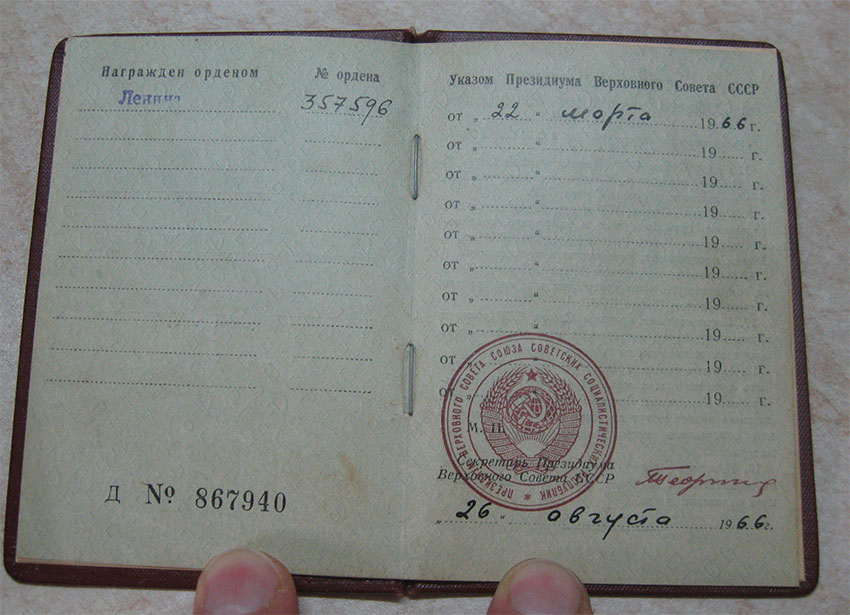 Награжден орденом № ордена
Ленина 357596
Д № 867940
Указом Президиума Верховного Совета СССР
от „ 22 “ марта 1966 г.
от „ “ 19 г.
от „ “ 19 г.
от „ “ 19 г.
от „ “ 19 г.
от „ “ 19 г.
от „ “ 19 г.
от „ “ 19 г.
от „ “ 19 г.
от „ 19 г.
ВЕРХОВНОГО СОВЕТА СОЮЗА СОВЕТСКИХ СОЦИАЛИСТИЧЕСКИХ РЕСПУБЛИК
М. П.
Секретарь Президиума
Верховного Совета СССР
„ 26 “ августа 1966 г.